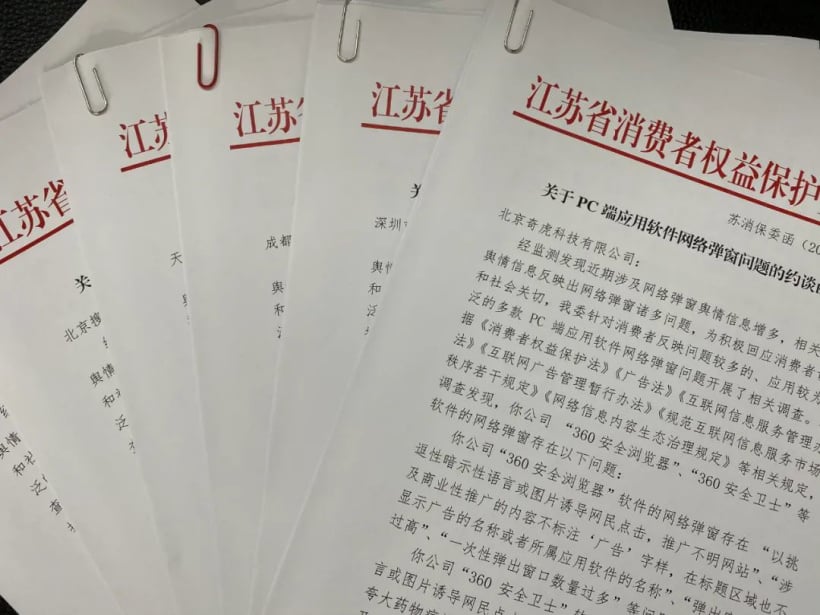 江苏省消费者权益保护
苏消保委函（20
关于 PC 端应用软件网络弹窗问题的约谈
北京奇虎科技有限公司：
经监测发现近期涉及网络弹窗舆情信息增多，相关
舆情信息反映出网络弹窗诸多问题，为积极回应消费者
和社会关切，我委针对消费者反映问题较多的、应用较为
泛的多款 PC 端应用软件网络弹窗问题开展了相关调查。
据《消费者权益保护法》《广告法》《互联网信息服务管理办
法》《互联网广告管理暂行办法》《规范互联网信息服务市场
秩序若干规定》《网络信息内容生态治理规定》等相关规定，
调查发现，你公司“360 安全浏览器”、“360 安全卫士”等
软件的网络弹窗存在以下问题：
你公司“360 安全浏览器”软件的网络弹窗存在“以挑
逗性暗示性语言或图片诱导网民点击，推广不明网站”、“涉
及商业性推广的内容不标注‘广告’字样，在标题区域也不
显示广告的名称或者所属应用软件的名称”、“弹出
过高”、“一次性弹出窗口数量过多”等
你公司“360 安全卫士”
言或图片诱导网民点
夸大药物
江苏省
关
深圳
舆
和
泛
江苏
成都
舆
和
江苏
天
江苏省
关
北京
舆情
和社
泛
查